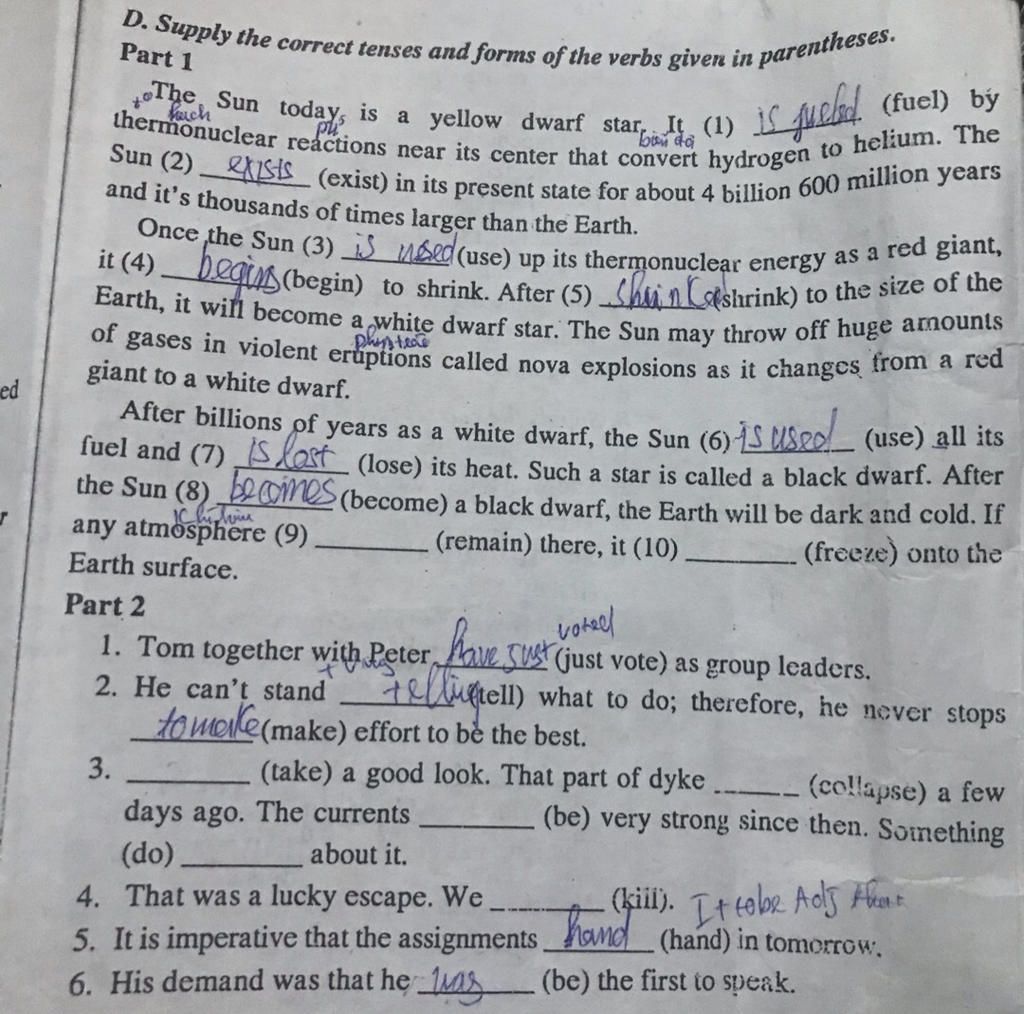 D. Supply the correct tenses and forms of the verbs given in parentheses.
Part 1
The Sun today, is a yellow dwarf star. It (1) is fueled (fuel) by
thermonuclear reactions near its center that convert hydrogen to helium. The
Sun (2) exists (exist) in its present state for about 4 billion 600 million years
and it's thousands of times larger than the Earth.
Once the Sun (3) is used (use) up its thermonuclear energy as a red giant,
it (4) begins (begin) to shrink. After (5) (shrink) to the size of the
Earth, it will become a white dwarf star. The Sun may throw off huge amounts
of gases in violent eruptions called nova explosions as it changes from a red
giant to a white dwarf.
After billions of years as a white dwarf, the Sun (6) is used (use) all its
fuel and (7) is lost (lose) its heat. Such a star is called a black dwarf. After
the Sun (8) becomes (become) a black dwarf, the Earth will be dark and cold. If
any atmosphere (9) ________ (remain) there, it (10) ________ (freeze) onto the
Earth surface.
Part 2
voted
1. Tom together with Peter have just (just vote) as group leaders.
2. He can't stand telling (tell) what to do; therefore, he never stops
to make (make) effort to be the best.
3. ________ (take) a good look. That part of dyke ________ (collapse) a few
days ago. The currents ________ (be) very strong since then. Something
(do) ________ about it.
4. That was a lucky escape. We ________ (kill). I + tobe Adj that
5. It is imperative that the assignments hand (hand) in tomorrow.
6. His demand was that he was (be) the first to speak.